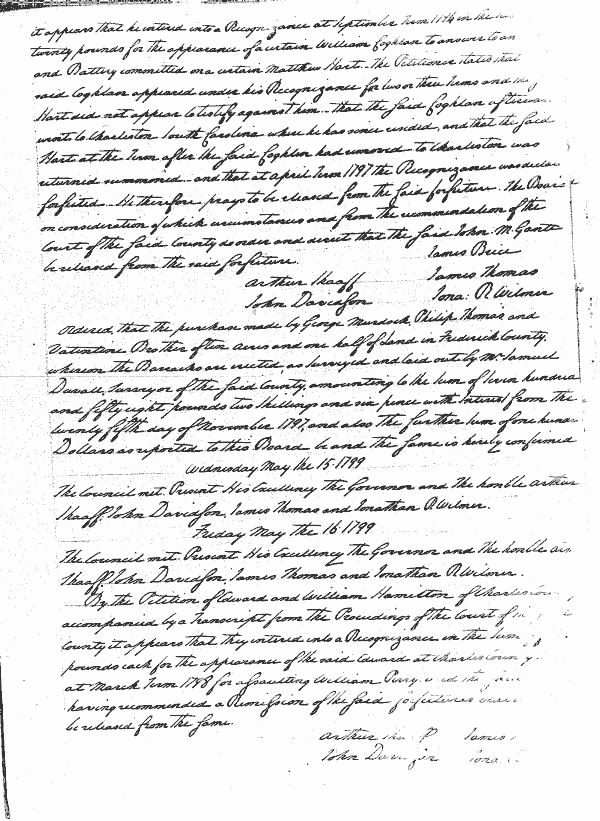 it appears that he entered into a Recognizance at September Term 1796 in the
twenty pounds for the appearance of a certain William Coghlan to answer to an
and Battery committed on a certain Matthew Hart. The Petitioner states that
said Coghlan appeared under his Recognizance for two or three Terms and
Hart did not appear to testify against him - that the said Coghlan
went to Charleston South Carolina where he has since resided, and that the said
Hart at the Term after the said Coghlan had removed to Charleston was
returned summoned - and that at April Term 1797 the Recognizance was
forfeited - He therefore prays to be released from the said forfeiture. The Board
on consideration of which circumstances and from the recommendation of the
Court of the said County do order and direct that the said John M. Gantt
be released from the said forfeiture.
James Brice
Arthur Shaaff James Thomas
John Davidson Jona: R. Wilmer
Ordered, that the purchase made by George Murdock, Philip Thomas and
Valentine Brother of ten acres and one half of land in Frederick County,
whereon the Barracks are erected, as surveyed and laid out by Mr. Samuel
Duvall, Surveyor of the said County, amounting to the sum of seven hundred
and fifty eight pounds two shillings and six pence with Interest from the
twenty fifth day of November 1797, and also the further sum of one
Dollars as reported to this Board be and the same is hereby confirmed
Wednesday May the 15 1799
The Council met. Present His Excellency The Governor and the honble Arthur
Shaaff, John Davidson, James Thomas and Jonathan R. Wilmer.
Friday May the 16 1799
The Council met. Present His Excellency The Governor and The honble
Shaaff, John Davidson, James Thomas and Jonathan R. Wilmer.
By the Petition of Edward and William Hamilton of Charles
accompanied by a Transcript from the Proceedings of the Court of
County it appears that they entered into a Recognizance in the Sum
pounds each for the appearance of the said Edward at Charles County
at March Term 1798 for assaulting William Perry, and the
having recommended a Remission of the said forfeitures
be released from the same.
Arthur James
John